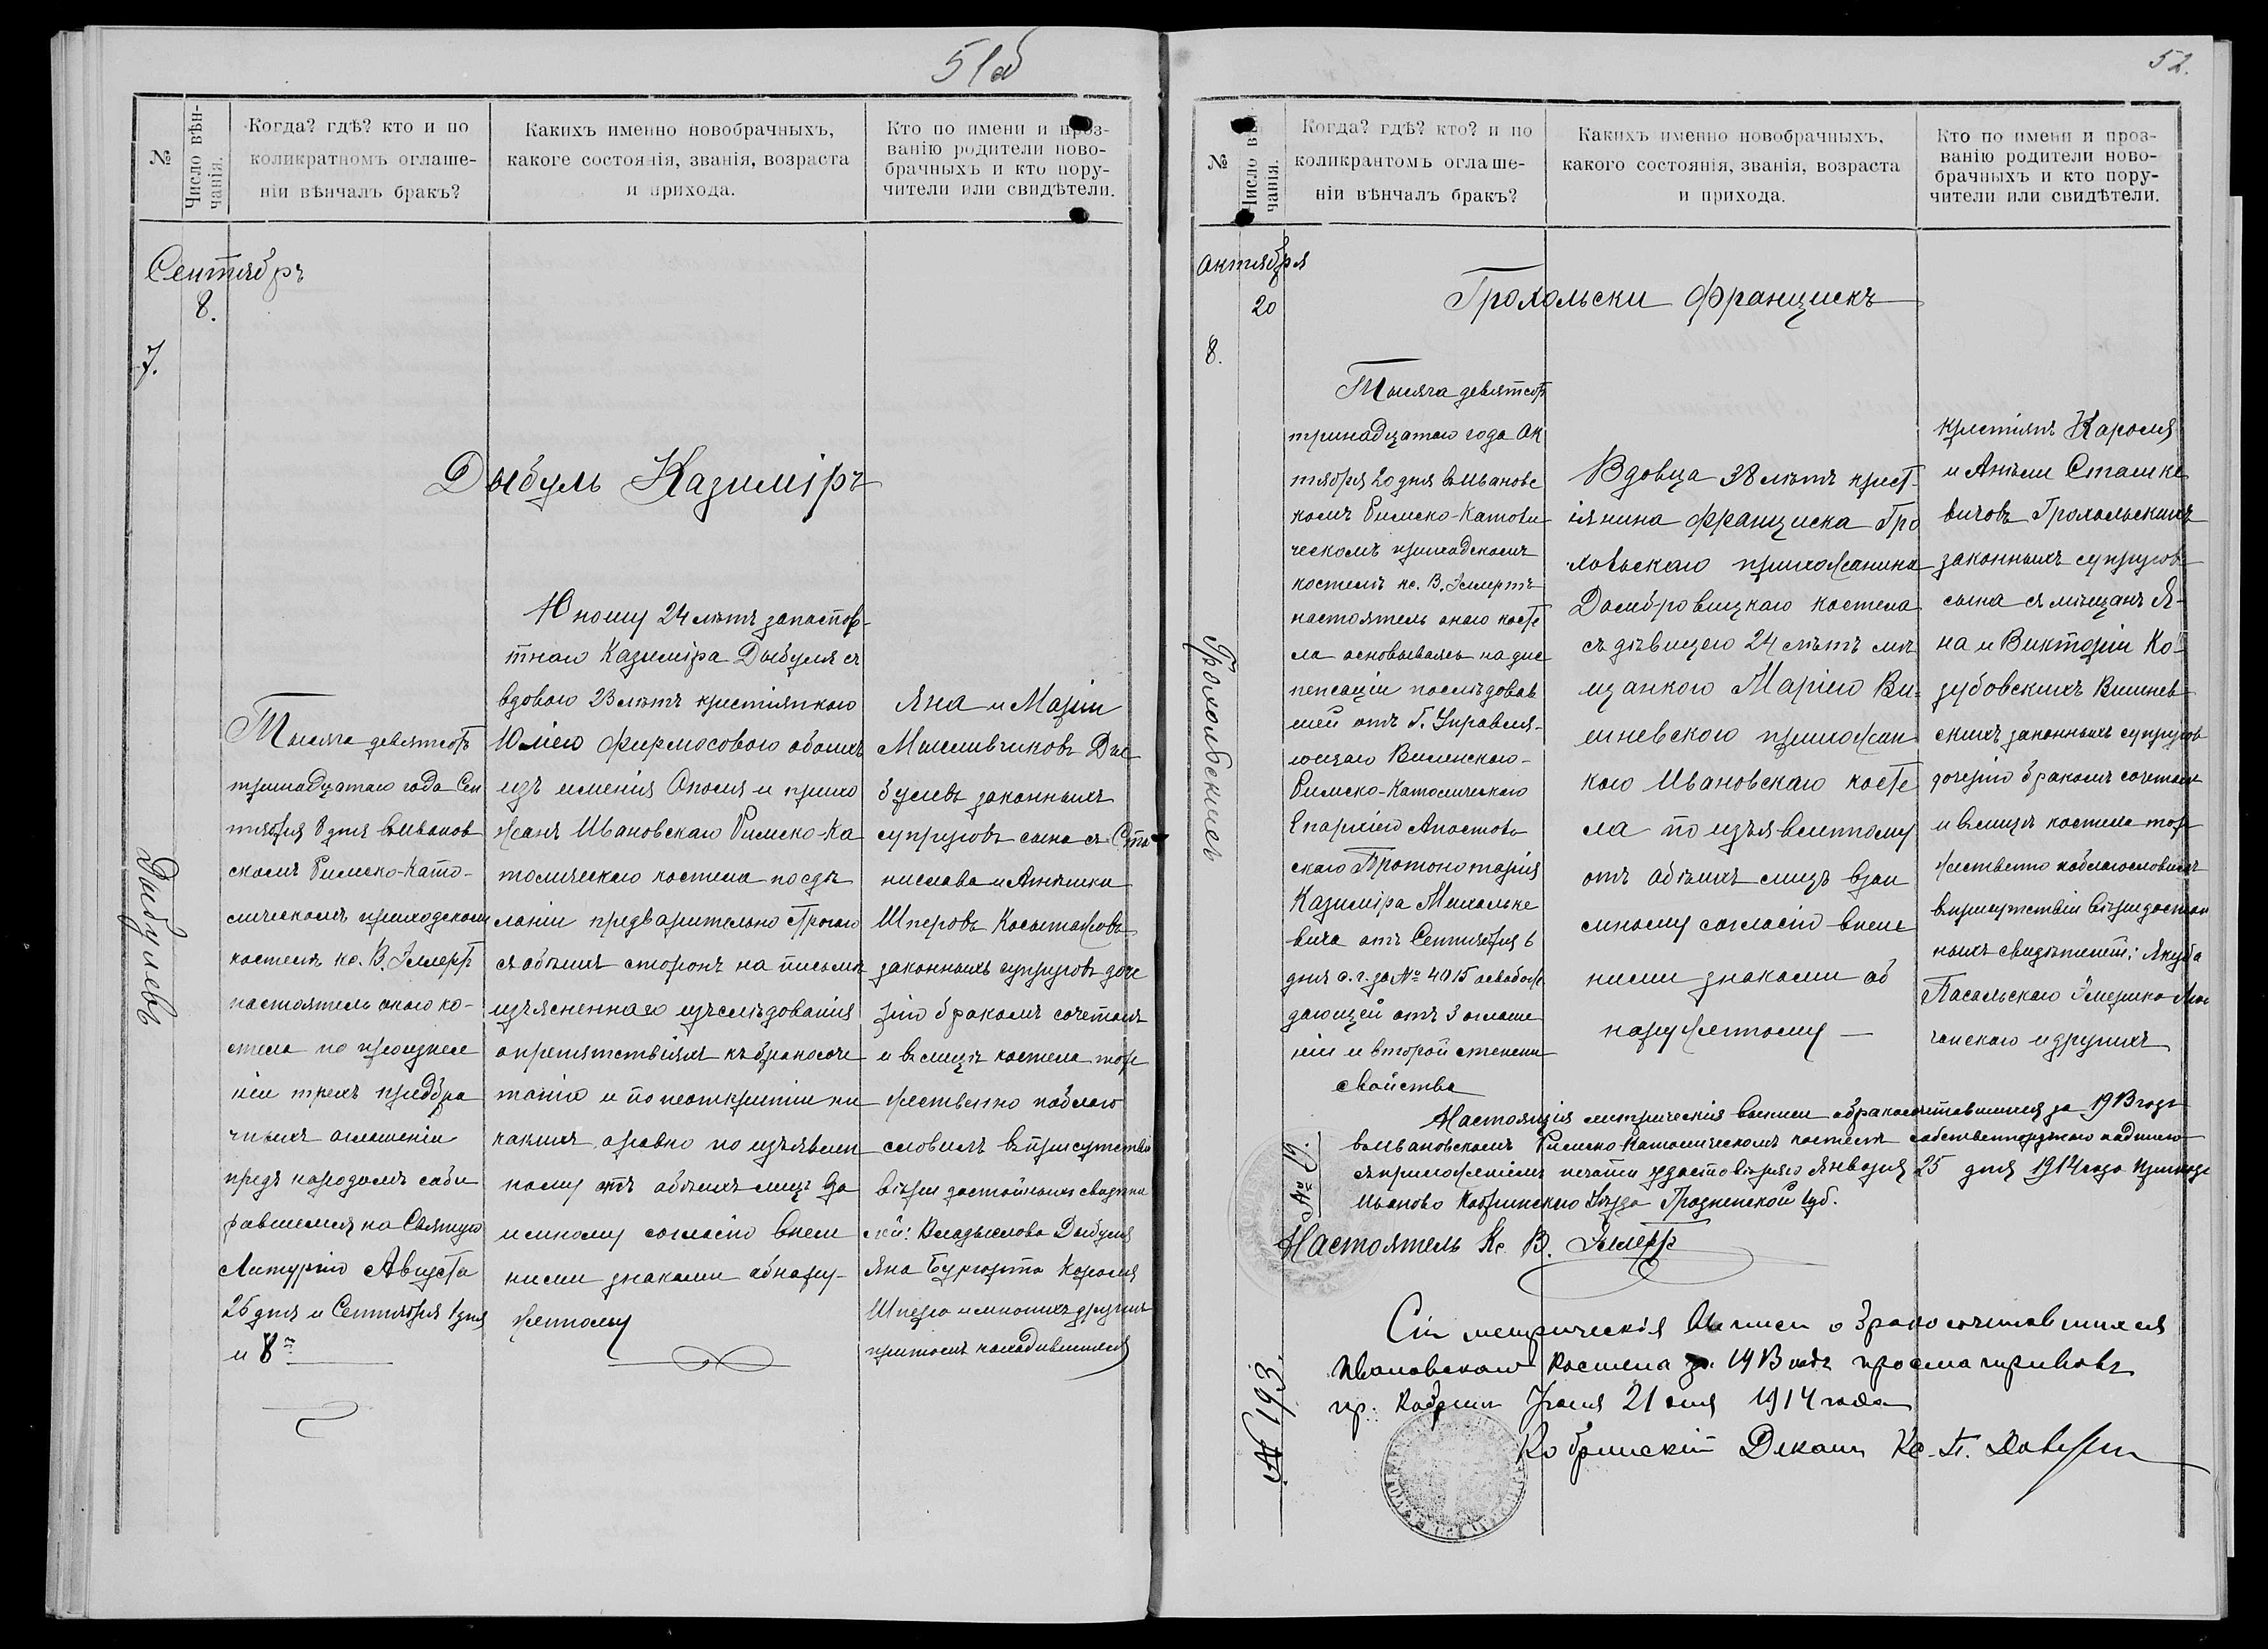 51об
№
Число вѣн-
чанія.
Когда? гдѣ? кто и по
коликратномъ оглаше-
ніи вѣнчалъ бракъ?
Какихъ именно новобрачныхъ,
какоге состоянія, званія, возраста
и прихода.
Кто по имени и проз-
ванію родители ново-
брачныхъ и кто пору-
чители или свидѣтели.
Сентябръ
8.
7.
Дыбуль Казиміръ
Дыбулевъ
Тысяча девятсотъ
тринадцатаго года Сен
тября 8 дня въ Иванов
скомъ Римско-Като-
лическомъ приходскомъ
костелѣ кс. В. Эллертъ
настоятель онаго ко-
стела по произнесе
ніи трехъ предбра
чныхъ оглашеніи
предъ народомъ соби
равшемся на Святую
Литургію Августа
25 дня и Сентября 1 дня
и 8го
Юношу 24 лѣтъ запастов-
тнаго Казиміра Дыбуля съ
вдовою 23 лѣтъ крестіянкою
Юліею Фирмосовою обоихъ
изъ имѣнія Ополя и прихо
жанъ Ивановскаго Римско-Ка
толическаго костела по сдѣ
ланіи предварительно строгаго
съ обѣихъ сторонъ на письмѣ
изъясненнаго изъслѣдованія
о препятствіяхъ къ бракосоче
танію и по неоткрытіи ни
какихъ а равно по изъявлен
ному отъ обѣихъ лицъ вза
имному согласію внеш
ними знаками обнару-
женному
Яна и Маріи
Мысливчиковъ Ды
булевъ законныхъ
супруговъ сына съ Ста
нислава и Агнешки
Шперовъ
законныхъ супруговъ доче
рію бракомъ сочеталъ
и въ лицѣ костела тор
жественно поблаго
словилъ въ присутствіи
вѣры достойныхъ свидѣте
лей: Владыслова Дыбуля
Яна Бургарта Кароля
Шпера и многихъ другихъ
притомъ находившихся
52.
№
Число вѣн
чанія.
Когда? гдѣ? кто? и по
коликрантомъ оглаше-
ніи вѣнчалъ бракъ?
Какихъ именно новобрачныхъ,
какого состоянія, званія, возраста
и прихода.
Кто по имени и проз-
ванію родители ново-
брачныхъ и кто пору-
чители или свидѣтели.
Октября
20
8.
Грохольски Францискъ
Грохольскихъ
Тысяча девятсотъ
тринадцатаго года Ок
тября 20 дня въ Ивановс
комъ Римско-Католи
ческомъ приходскомъ
костелѣ кс. В. Эллертъ
настоятель онаго косте
ла основываясь на дис
пенсаціи послѣдовав
шей отъ Г. Управля-
ющаго Виленскою
Римско-Католическаго
Епархіею Апостоль
скаго Протонотарія
Казиміра Михальке
вича отъ Сентября 6
дня с. г. за № 4015 освобож
дающей отъ 3 оглаше
ніи и второй степени
свойства
Вдовца 38 лѣтъ крест-
іянина Франциска Гро
хольскаго прихожанина
Домбровицкаго костела
съ дѣвицею 24 лѣтъ мѣ
щанкою Маріею Ви-
шневскою прихожан
кою Ивановскаго косте
ла по изъявленному
отъ обѣихъ лицъ взаи
мному согласію внеш
ними знаками об
наруженному —
крестіянъ Кароля
и Анели Сташке
вичовъ Грохольскихъ
законныхъ супруговъ
сына съ мѣщанъ Я-
на и Викторіи Ко-
зубовскихъ Вишнев
скихъ законныхъ супруговъ
дочерію бракомъ сочеталъ
и въ лицѣ костела тор
жественно поблагословилъ
въ присутствіи вѣры достой
ныхъ свидѣтелей: Якуба
и другихъ
№ 19.
Настоящія метрическія выписи о бракосочетавшихся за 1913 годъ
въ Ивановскомъ Римско-Католическомъ костелѣ собственноручною подписью
съ приложеніемъ печати удостовѣряю Января 25 дня 1914 года Приходъ
Иваново Кобринскаго Уѣзда Гродненской губ.
Настоятель Кс. В. Эллертъ
№ 193.
Сіи метрическія выписи о бракосочетавшихся
Ивановскаго Костела за 1913 годъ просматривалъ
гр. Кобрин 21 дня 1914 года
Кобринскій Деканъ Кс.